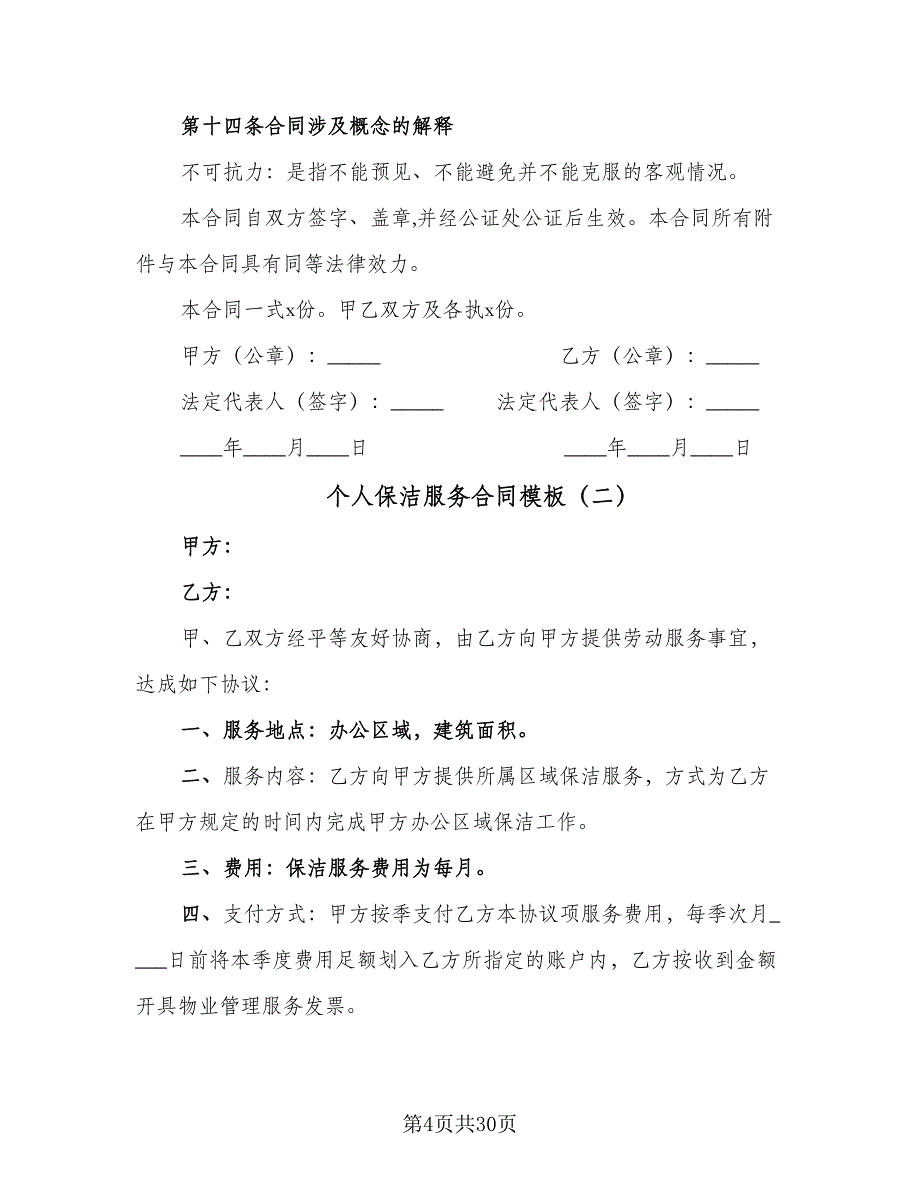 第十四条合同涉及概念的解释
不可抗力：是指不能预见、不能避免并不能克服的客观情况。
本合同自双方签字、盖章,并经公证处公证后生效。本合同所有附
件与本合同具有同等法律效力。
本合同一式x份。甲乙双方及各执x份。
甲方（公章）：_____ 乙方（公章）：_____
法定代表人（签字）：_____ 法定代表人（签字）：_____
____年____月____日 ____年____月____日
个人保洁服务合同模板（二）
甲方：
乙方：
甲、乙双方经平等友好协商，由乙方向甲方提供劳动服务事宜，
达成如下协议：
一、服务地点：办公区域，建筑面积。
二、服务内容：乙方向甲方提供所属区域保洁服务，方式为乙方
在甲方规定的时间内完成甲方办公区域保洁工作。
三、费用：保洁服务费用为每月。
四、支付方式：甲方按季支付乙方本协议项服务费用，每季次月_
___日前将本季度费用足额划入乙方所指定的账户内，乙方按收到金额
开具物业管理服务发票。
第4页共30页